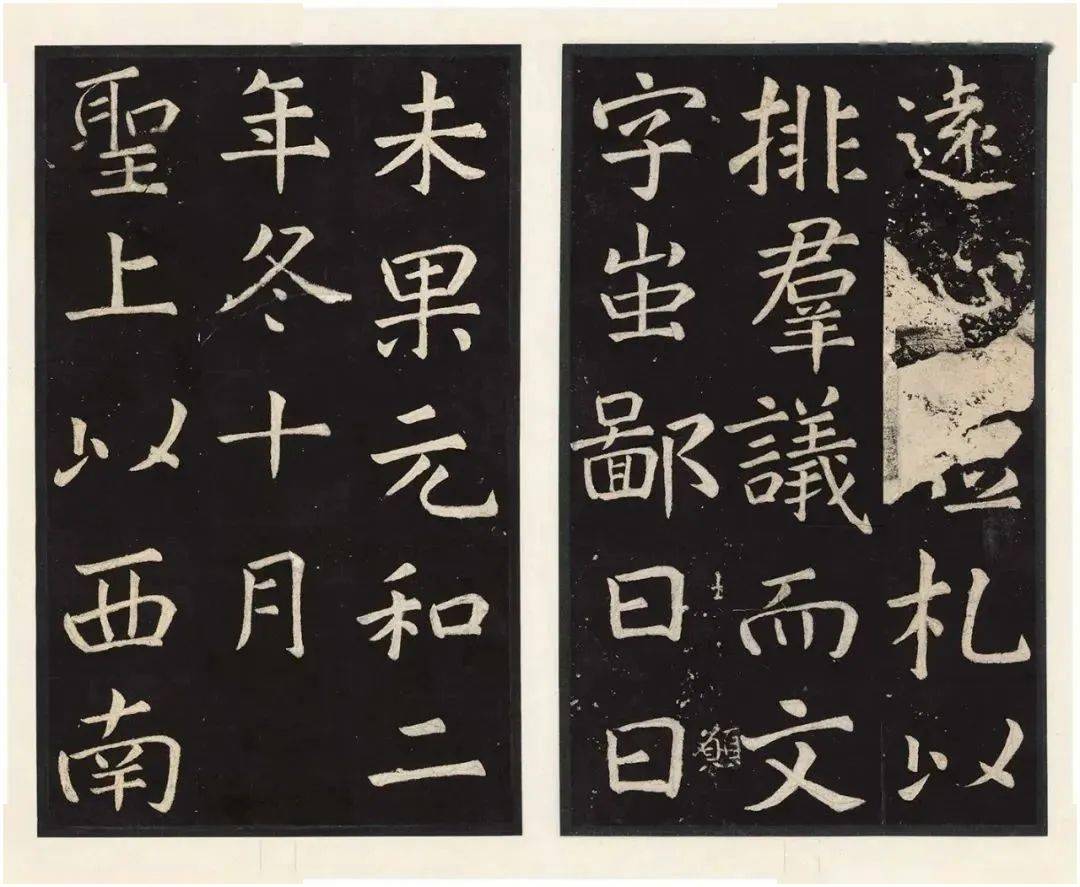 遠札以
排羣議而文
字蚩鄙日日
願
未果元和二
年冬十月
聖上以西南